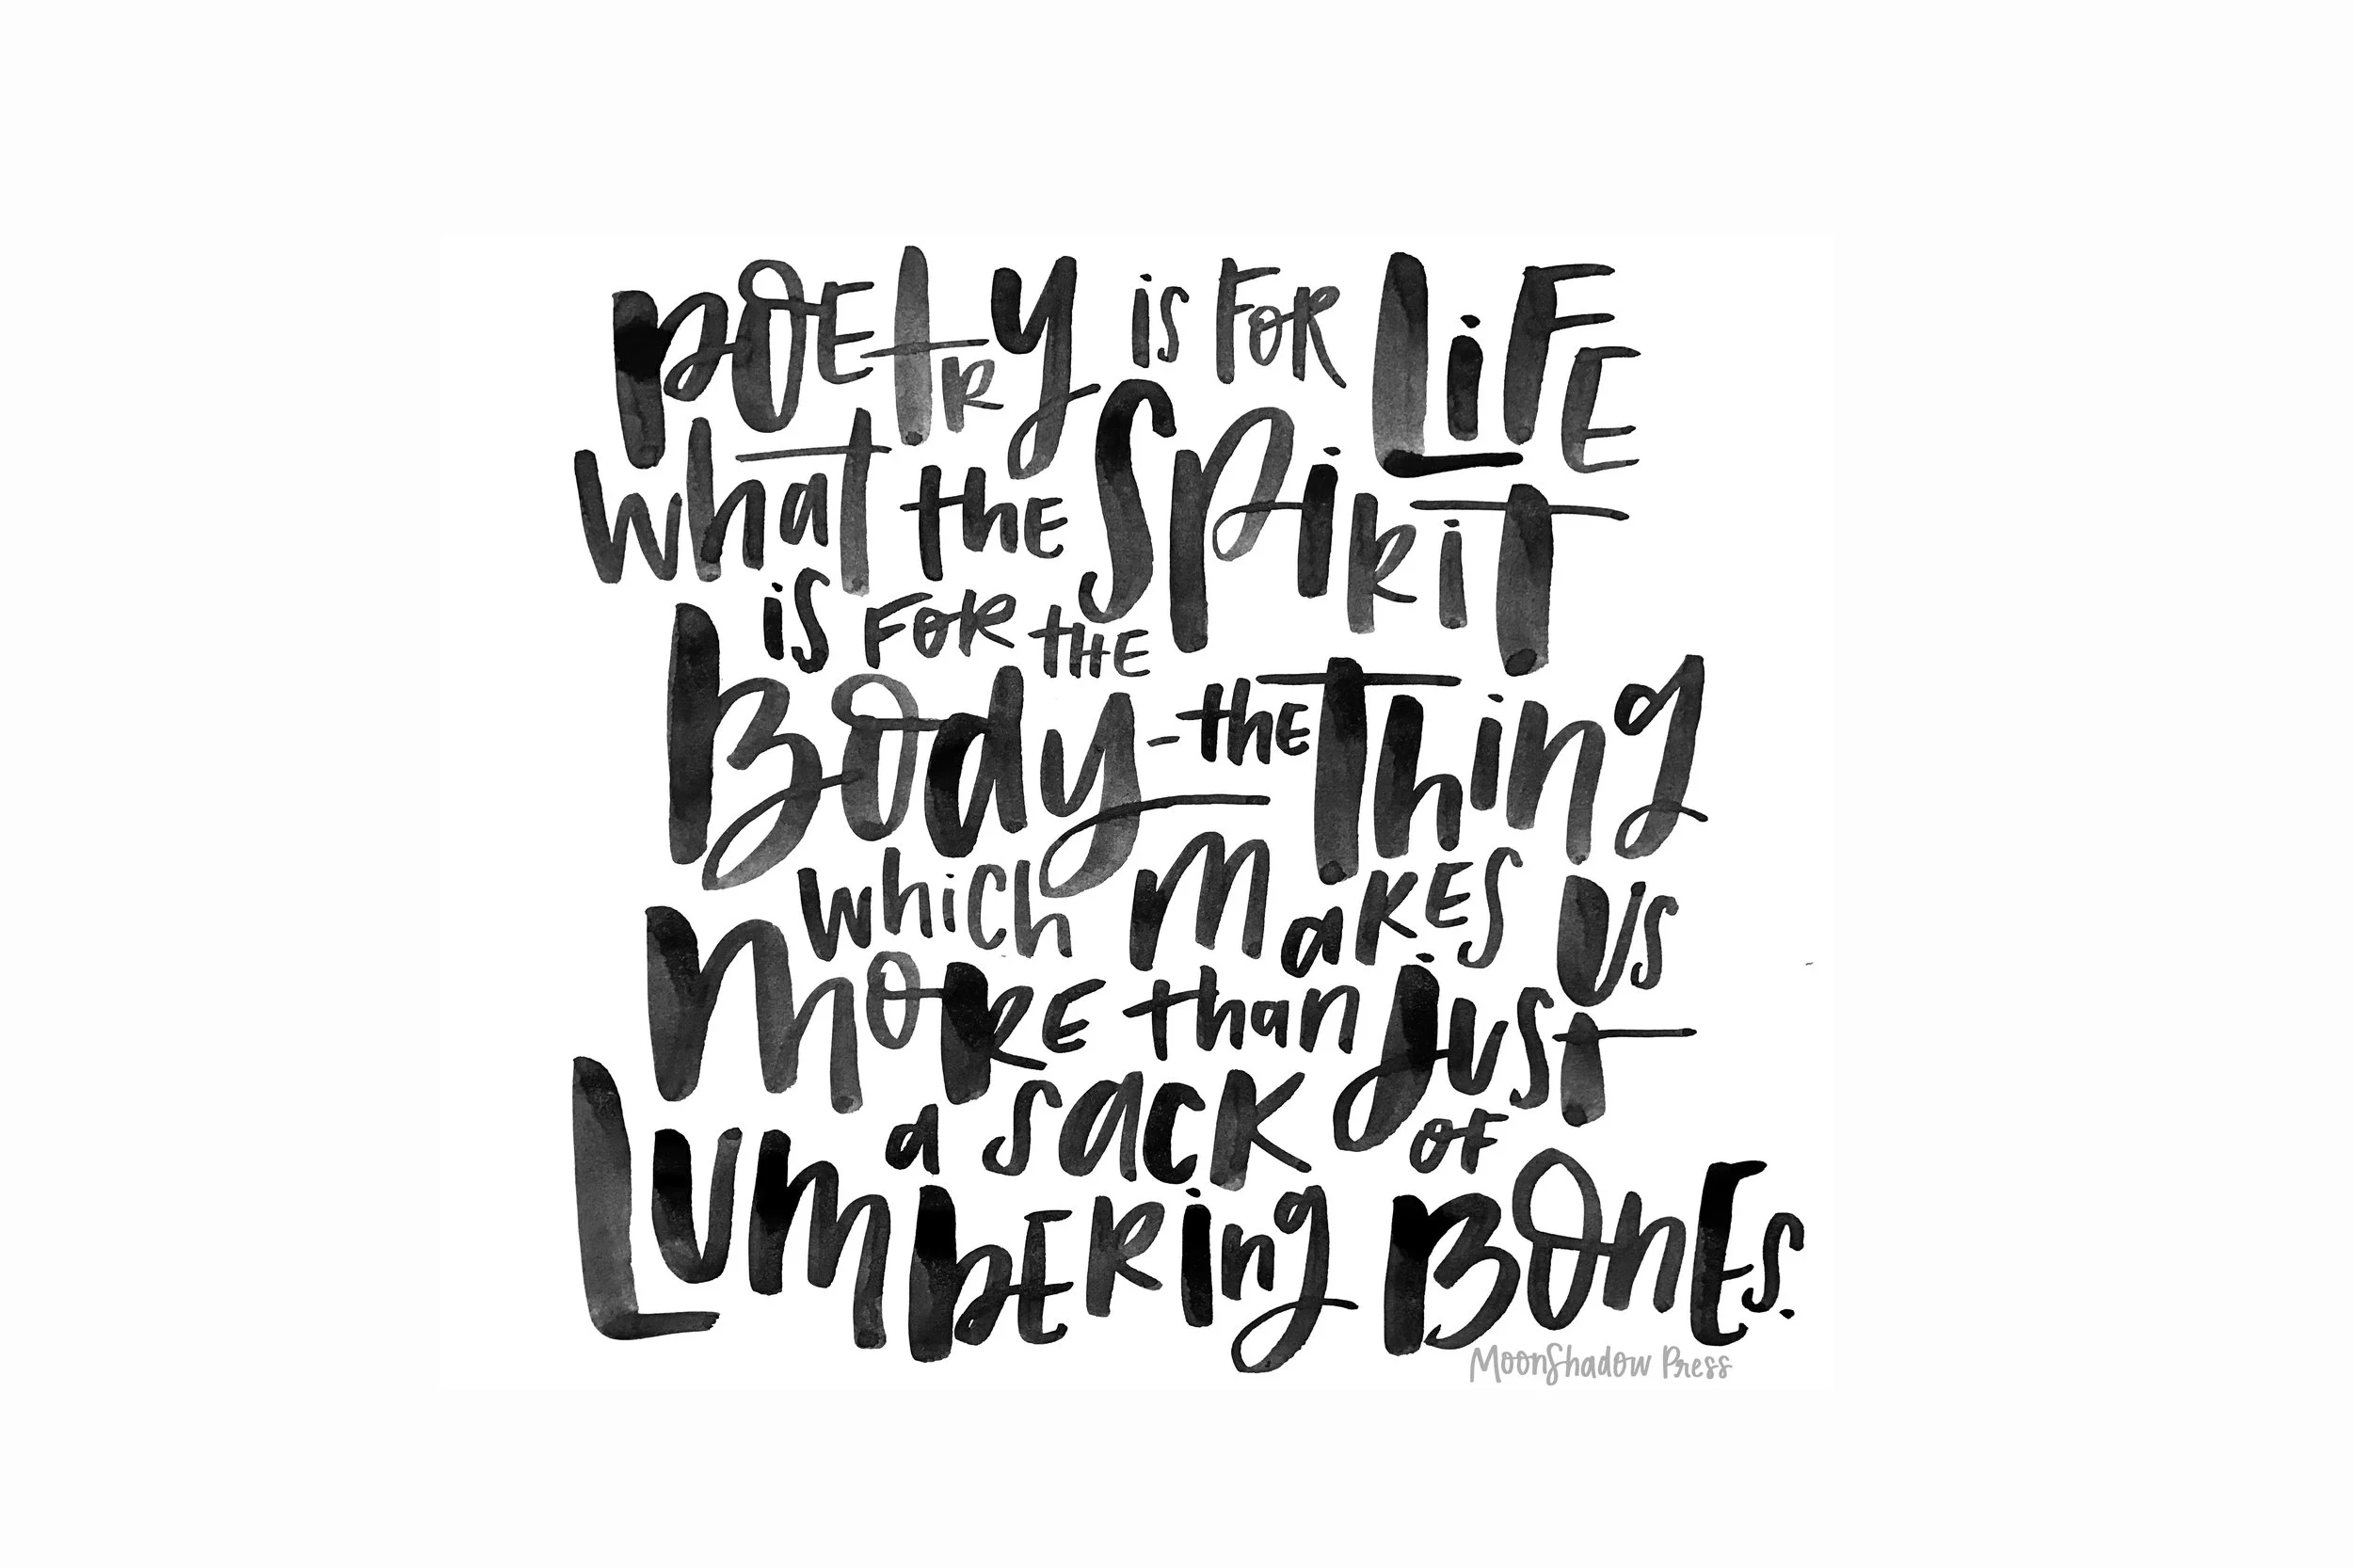 Poetry is for Life
what the Spirit
is for the
Body - the Thing
which makes us
more than just
a sack of
Lumbering Bones.
MoonShadow Press